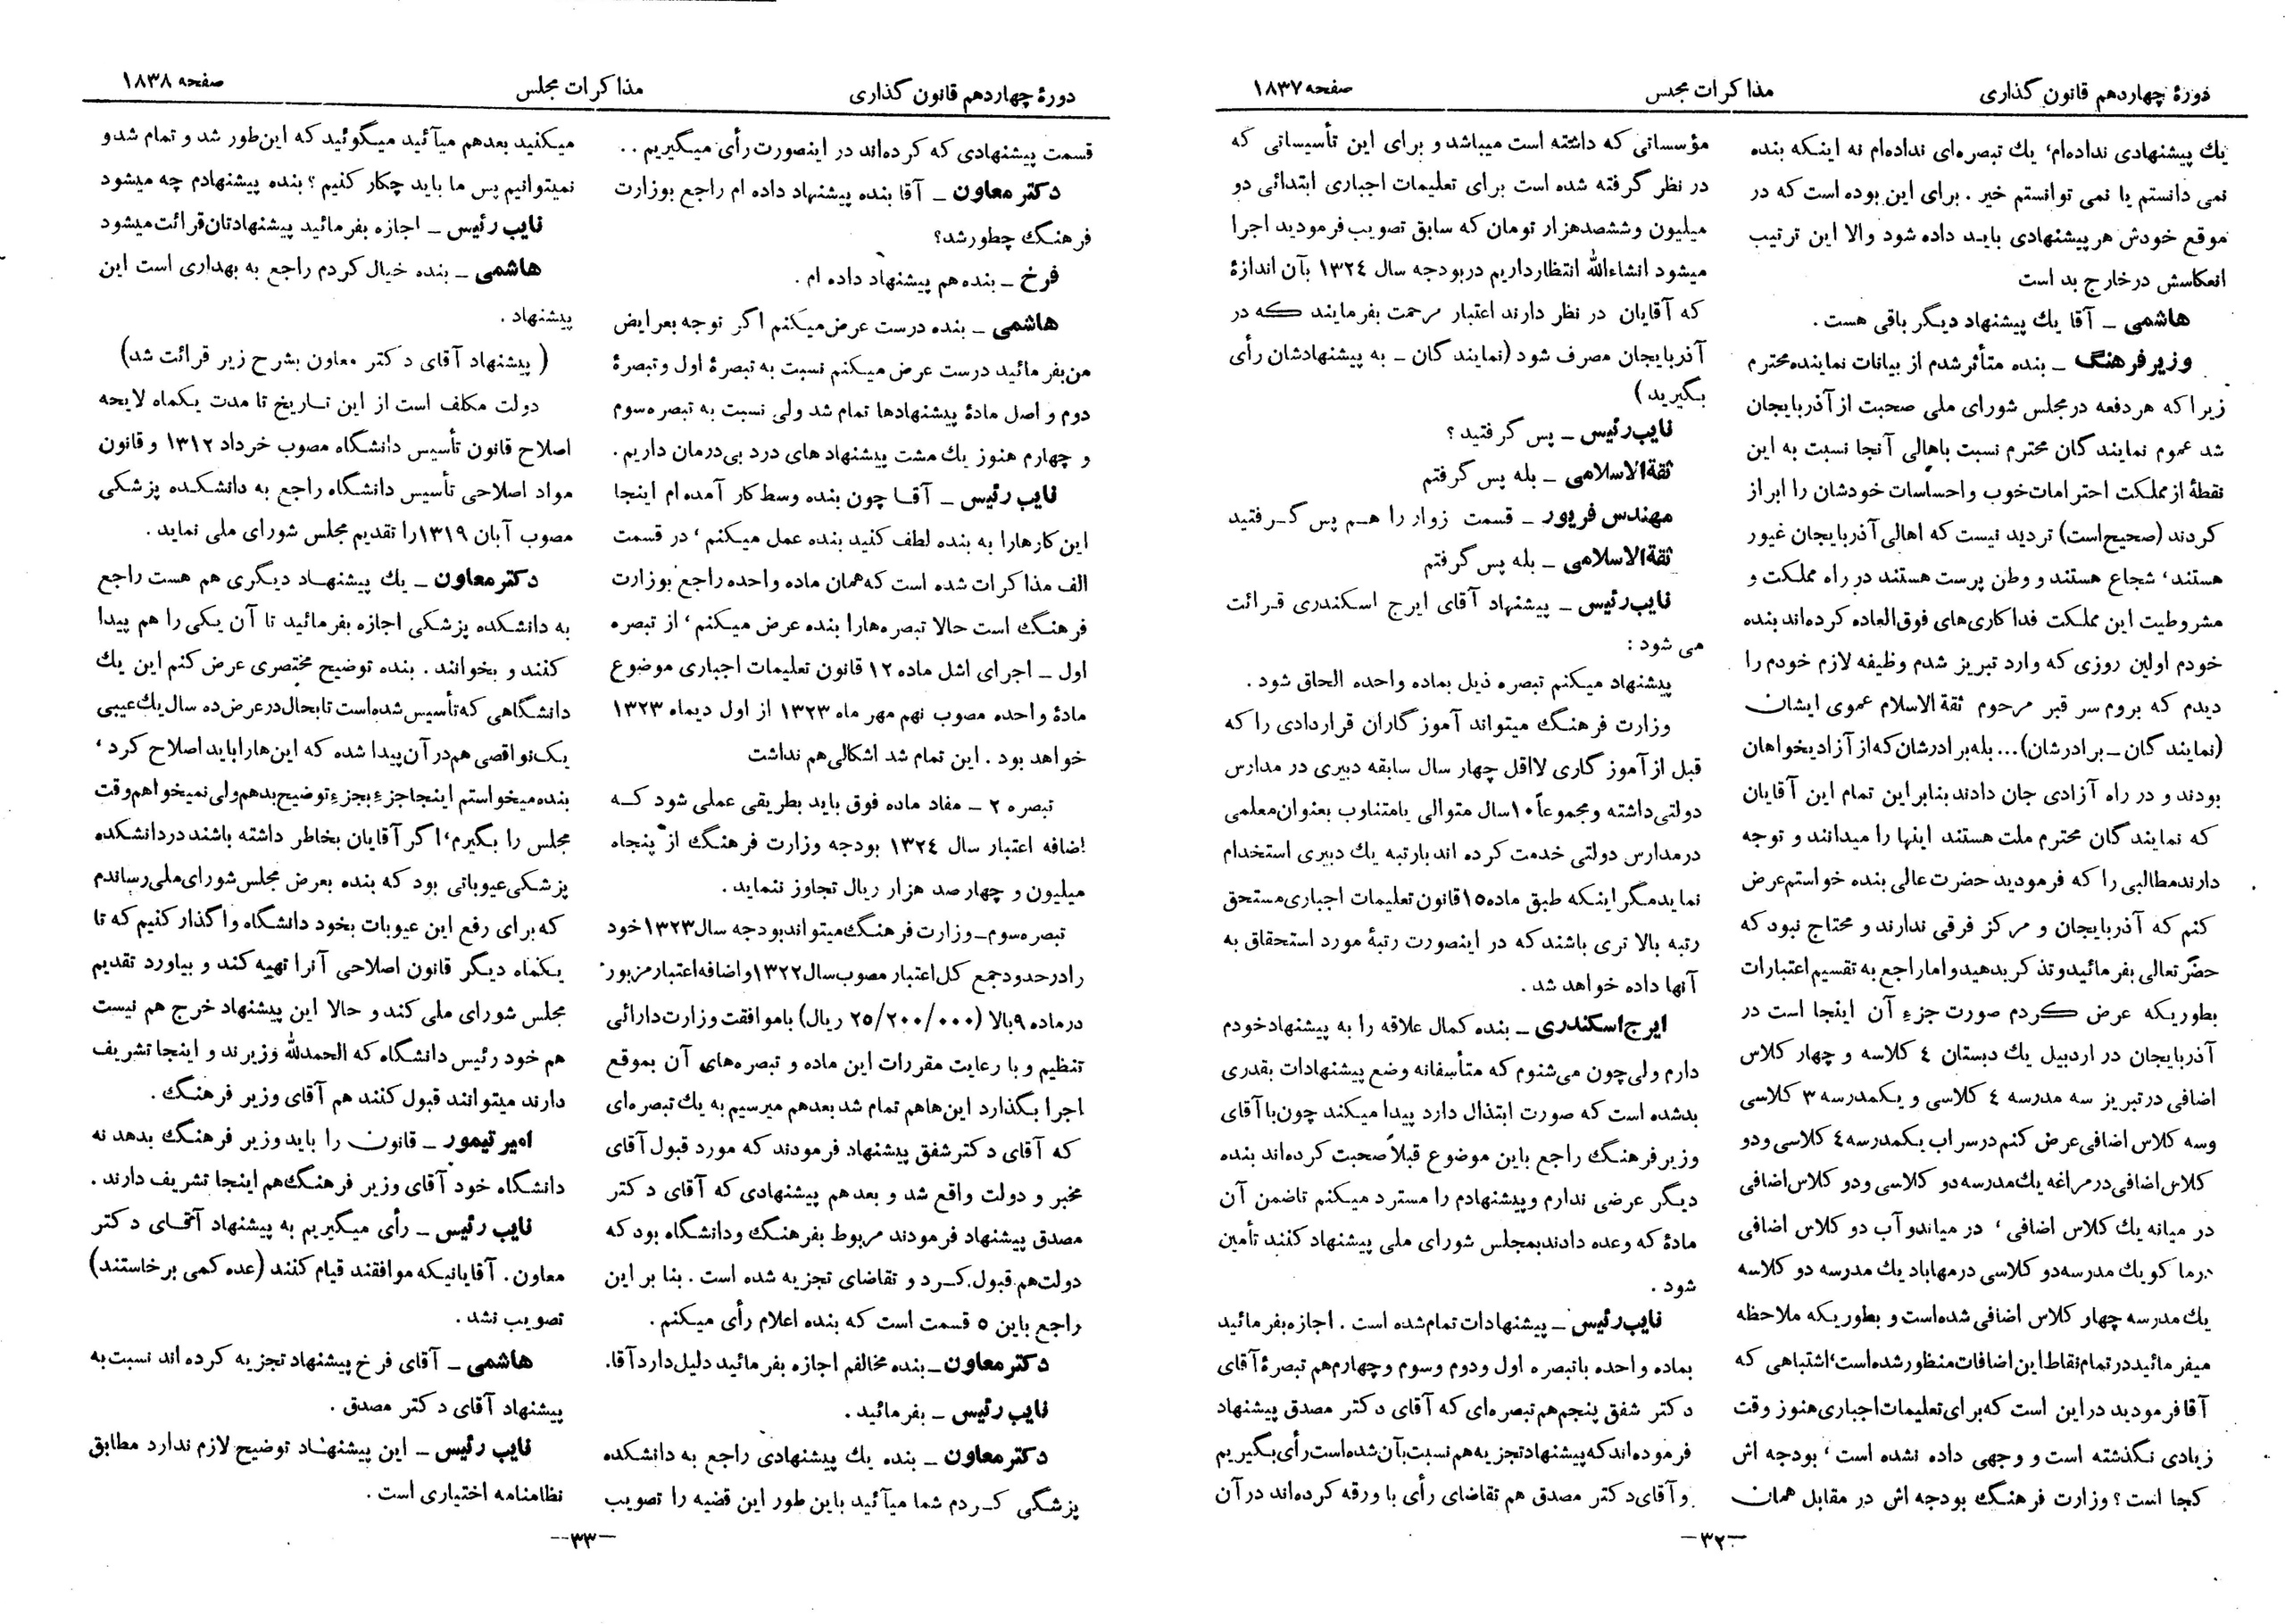 دورهٔ چهاردهم قانون گذاری
مذاکرات مجلس
صفحه ۱۸۳۷
یك پیشنهادی نداده‌ام، یك تبصره‌ای نداده‌ام نه اینکه بنده
نمی دانستم یا نمی توانستم خیر . برای این بوده است که در
موقع خودش هر پیشنهادی باید داده شود والا این ترتیب
انعکاسش در خارج بد است
هاشمی ـ آقا یك پیشنهاد دیگر باقی هست .
وزیر فرهنگ ـ بنده متأثر شدم از بیانات نماینده محترم
زیرا که هر دفعه در مجلس شورای ملی صحبت از آذربایجان
شد عموم نمایندگان محترم نسبت باهالی آنجا نسبت به این
نقطهٔ از مملکت احترامات خوب و احساسات خودشان را ابراز
کردند (صحیح است) تردید نیست که اهالی آذربایجان غیور
هستند، شجاع هستند و وطن پرست هستند در راه مملکت و
مشروطیت این مملکت فداکاری‌های فوق‌العاده کرده‌اند بنده
خودم اولین روزی که وارد تبریز شدم وظیفه لازم خودم را
دیدم که بروم سر قبر مرحوم ثقة الاسلام عموی ایشان
(نمایندگان ـ برادرشان)... بله برادرشان که از آزادیخواهان
بودند و در راه آزادی جان دادند بنابراین تمام این آقایان
که نمایندگان محترم ملت هستند اینها را میدانند و توجه
دارند مطالبی را که فرمودید حضرت عالی بنده خواستم عرض
کنم که آذربایجان و مرکز فرقی ندارند و محتاج نبود که
حضرتعالی بفرمائید و تذکر بدهید و اما راجع به تقسیم اعتبارات
بطوریکه عرض کردم صورت جزء آن اینجا است در
آذربایجان در اردبیل یك دبستان ٤ کلاسه و چهار کلاس
اضافی در تبریز سه مدرسه ٤ کلاسی و یکمدرسه ۳ کلاسی
وسه کلاس اضافی عرض کنم در سراب یکمدرسه ٤ کلاسی و دو
کلاس اضافی در مراغه یك مدرسه دو کلاسی و دو کلاس اضافی
در میانه یك کلاس اضافی ، در میاندوآب دو کلاس اضافی
درماکو یك مدرسه دو کلاسی در مهاباد یك مدرسه دو کلاسه
یك مدرسه چهار کلاس اضافی شده است و بطوریکه ملاحظه
میفرمائید در تمام نقاط این اضافات منظور شده است، اشتباهی که
آقا فرمودید در این است که برای تعلیمات اجباری هنوز وقت
زیادی نگذشته است و وجهی داده نشده است ، بودجه اش
کجا است ؟ وزارت فرهنگ بودجه اش در مقابل همان
مؤسساتی که داشته است میباشد و برای این تأسیساتی که
در نظر گرفته شده است برای تعلیمات اجباری ابتدائی دو
میلیون وششصدهزار تومان که سابق تصویب فرمودید اجرا
میشود انشاءالله انتظار داریم در بودجه سال ۱۳۲٤ بآن اندازهٔ
که آقایان در نظر دارند اعتبار مرحمت بفرمایند که در
آذربایجان مصرف شود (نمایندگان ـ به پیشنهادشان رأی
بگیرید)
نایب رئیس ـ پس گرفتید ؟
ثقةالاسلامی ـ بله پس گرفتم
مهندس فریور ـ قسمت زوار را هم پس گرفتید
ثقةالاسلامی ـ بله پس گرفتم
نایب رئیس ـ پیشنهاد آقای ایرج اسکندری قرائت
می شود :
پیشنهاد میکنم تبصره ذیل بماده واحده الحاق شود .
وزارت فرهنگ میتواند آموزگاران قراردادی را که
قبل از آموزگاری لااقل چهار سال سابقه دبیری در مدارس
دولتی داشته و مجموعاً ۱۰ سال متوالی یا متناوب بعنوان معلمی
در مدارس دولتی خدمت کرده اند بارتبه یك دبیری استخدام
نماید مگر اینکه طبق ماده ۱۵ قانون تعلیمات اجباری مستحق
رتبه بالا تری باشند که در اینصورت رتبهٔ مورد استحقاق به
آنها داده خواهد شد .
ایرج اسکندری ـ بنده کمال علاقه را به پیشنهاد خودم
دارم ولی چون می‌شنوم که متأسفانه وضع پیشنهادات بقدری
بدشده است که صورت ابتذال دارد پیدا میکند چون با آقای
وزیر فرهنگ راجع باین موضوع قبلاً صحبت کرده‌اند بنده
دیگر عرضی ندارم و پیشنهادم را مسترد میکنم تا ضمن آن
مادهٔ که وعده دادند بمجلس شورای ملی پیشنهاد کنند تأمین
شود .
نایب رئیس ـ پیشنهادات تمام شده است . اجازه بفرمائید
بماده واحده با تبصره اول و دوم وسوم و چهارم هم تبصرهٔ آقای
دکتر شفق پنجم هم تبصره‌ای که آقای دکتر مصدق پیشنهاد
فرموده‌اند که پیشنهاد تجزیه هم نسبت بآن شده است رأی بگیریم
و آقای دکتر مصدق هم تقاضای رأی با ورقه کرده‌اند در آن
ـ۳۲ـ
دورهٔ چهاردهم قانون گذاری
مذاکرات مجلس
صفحه ۱۸۳۸
قسمت پیشنهادی که کرده‌اند در اینصورت رأی میگیریم . .
دکتر معاون ـ آقا بنده پیشنهاد داده ام راجع بوزارت
فرهنگ چطور شد؟
فرخ ـ بنده هم پیشنهاد داده ام .
هاشمی ـ بنده درست عرض میکنم اگر توجه بعرایض
من بفرمائید درست عرض میکنم نسبت به تبصرهٔ اول و تبصرهٔ
دوم و اصل مادهٔ پیشنهادها تمام شد ولی نسبت به تبصره سوم
و چهارم هنوز یك مشت پیشنهاد های درد بی‌درمان داریم .
نایب رئیس ـ آقا چون بنده وسط کار آمده ام اینجا
این کارها را به بنده لطف کنید بنده عمل میکنم ، در قسمت
الف مذاکرات شده است که همان ماده واحده راجع بوزارت
فرهنگ است حالا تبصره‌ها را بنده عرض میکنم ، از تبصره
اول ـ اجرای اشل ماده ۱۲ قانون تعلیمات اجباری موضوع
مادهٔ واحده مصوب نهم مهر ماه ۱۳۲۳ از اول دیماه ۱۳۲۳
خواهد بود . این تمام شد اشکالی هم نداشت
تبصره ۲ ـ مفاد ماده فوق باید بطریقی عملی شود که
اضافه اعتبار سال ۱۳۲٤ بودجه وزارت فرهنگ از پنجاه
میلیون و چهار صد هزار ریال تجاوز ننماید .
تبصره سوم ـ وزارت فرهنگ میتواند بودجه سال ۱۳۲۳ خود
را در حدود جمع کل اعتبار مصوب سال ۱۳۲۲ و اضافه اعتبار مزبور
در ماده ۹ بالا (۲۵/۲۰۰/۰۰۰ ریال) با موافقت وزارت دارائی
تنظیم و با رعایت مقررات این ماده و تبصره‌های آن بموقع
اجرا بگذارد این‌ها هم تمام شد بعدهم میرسیم به یك تبصره‌ای
که آقای دکتر شفق پیشنهاد فرمودند که مورد قبول آقای
مخبر و دولت واقع شد و بعدهم پیشنهادی که آقای دکتر
مصدق پیشنهاد فرمودند مربوط بفرهنگ و دانشگاه بود که
دولت هم قبول کرد و تقاضای تجزیه شده است . بنا بر این
راجع باین ۵ قسمت است که بنده اعلام رأی میکنم .
دکتر معاون ـ بنده مخالفم اجازه بفرمائید دلیل دارد آقا.
نایب رئیس ـ بفرمائید .
دکتر معاون ـ بنده یك پیشنهادی راجع به دانشکده
پزشگی کردم شما میآئید باین طور این قضیه را تصویب
میکنید بعدهم میآئید میگوئید که این‌طور شد و تمام شد و
نمیتوانیم پس ما باید چکار کنیم ؟ بنده پیشنهادم چه میشود
نایب رئیس ـ اجازه بفرمائید پیشنهادتان قرائت میشود
هاشمی ـ بنده خیال کردم راجع به بهداری است این
پیشنهاد .
( پیشنهاد آقای دکتر معاون بشرح زیر قرائت شد)
دولت مکلف است از این تاریخ تا مدت یکماه لایحه
اصلاح قانون تأسیس دانشگاه مصوب خرداد ۱۳۱۲ و قانون
مواد اصلاحی تأسیس دانشگاه راجع به دانشکده پزشکی
مصوب آبان ۱۳۱۹ را تقدیم مجلس شورای ملی نماید .
دکتر معاون ـ یك پیشنهاد دیگری هم هست راجع
به دانشکده پزشکی اجازه بفرمائید تا آن یکی را هم پیدا
کنند و بخوانند . بنده توضیح مختصری عرض کنم این یك
دانشگاهی که تأسیس شده است تا بحال در عرض ده سال یك عیبی
یك نواقصی هم در آن پیدا شده که این‌ها را باید اصلاح کرد ،
بنده میخواستم اینجا جزء بجزء توضیح بدهم ولی نمیخواهم وقت
مجلس را بگیرم، اگر آقایان بخاطر داشته باشند در دانشکده
پزشکی عیوباتی بود که بنده بعرض مجلس شورای ملی رساندم
که برای رفع این عیوبات بخود دانشگاه واگذار کنیم که تا
یکماه دیگر قانون اصلاحی آنرا تهیه کند و بیاورد تقدیم
مجلس شورای ملی کند و حالا این پیشنهاد خرج هم نیست
هم خود رئیس دانشگاه که الحمدلله وزیرند و اینجا تشریف
دارند میتوانند قبول کنند هم آقای وزیر فرهنگ .
امیر تیمور ـ قانون را باید وزیر فرهنگ بدهد نه
دانشگاه خود آقای وزیر فرهنگ هم اینجا تشریف دارند .
نایب رئیس ـ رأی میگیریم به پیشنهاد آقای دکتر
معاون . آقایانیکه موافقند قیام کنند (عده کمی برخاستند)
تصویب نشد .
هاشمی ـ آقای فرخ پیشنهاد تجزیه کرده اند نسبت به
پیشنهاد آقای دکتر مصدق .
نایب رئیس ـ این پیشنهاد توضیح لازم ندارد مطابق
نظامنامه اختیاری است .
ـ۳۳ـ